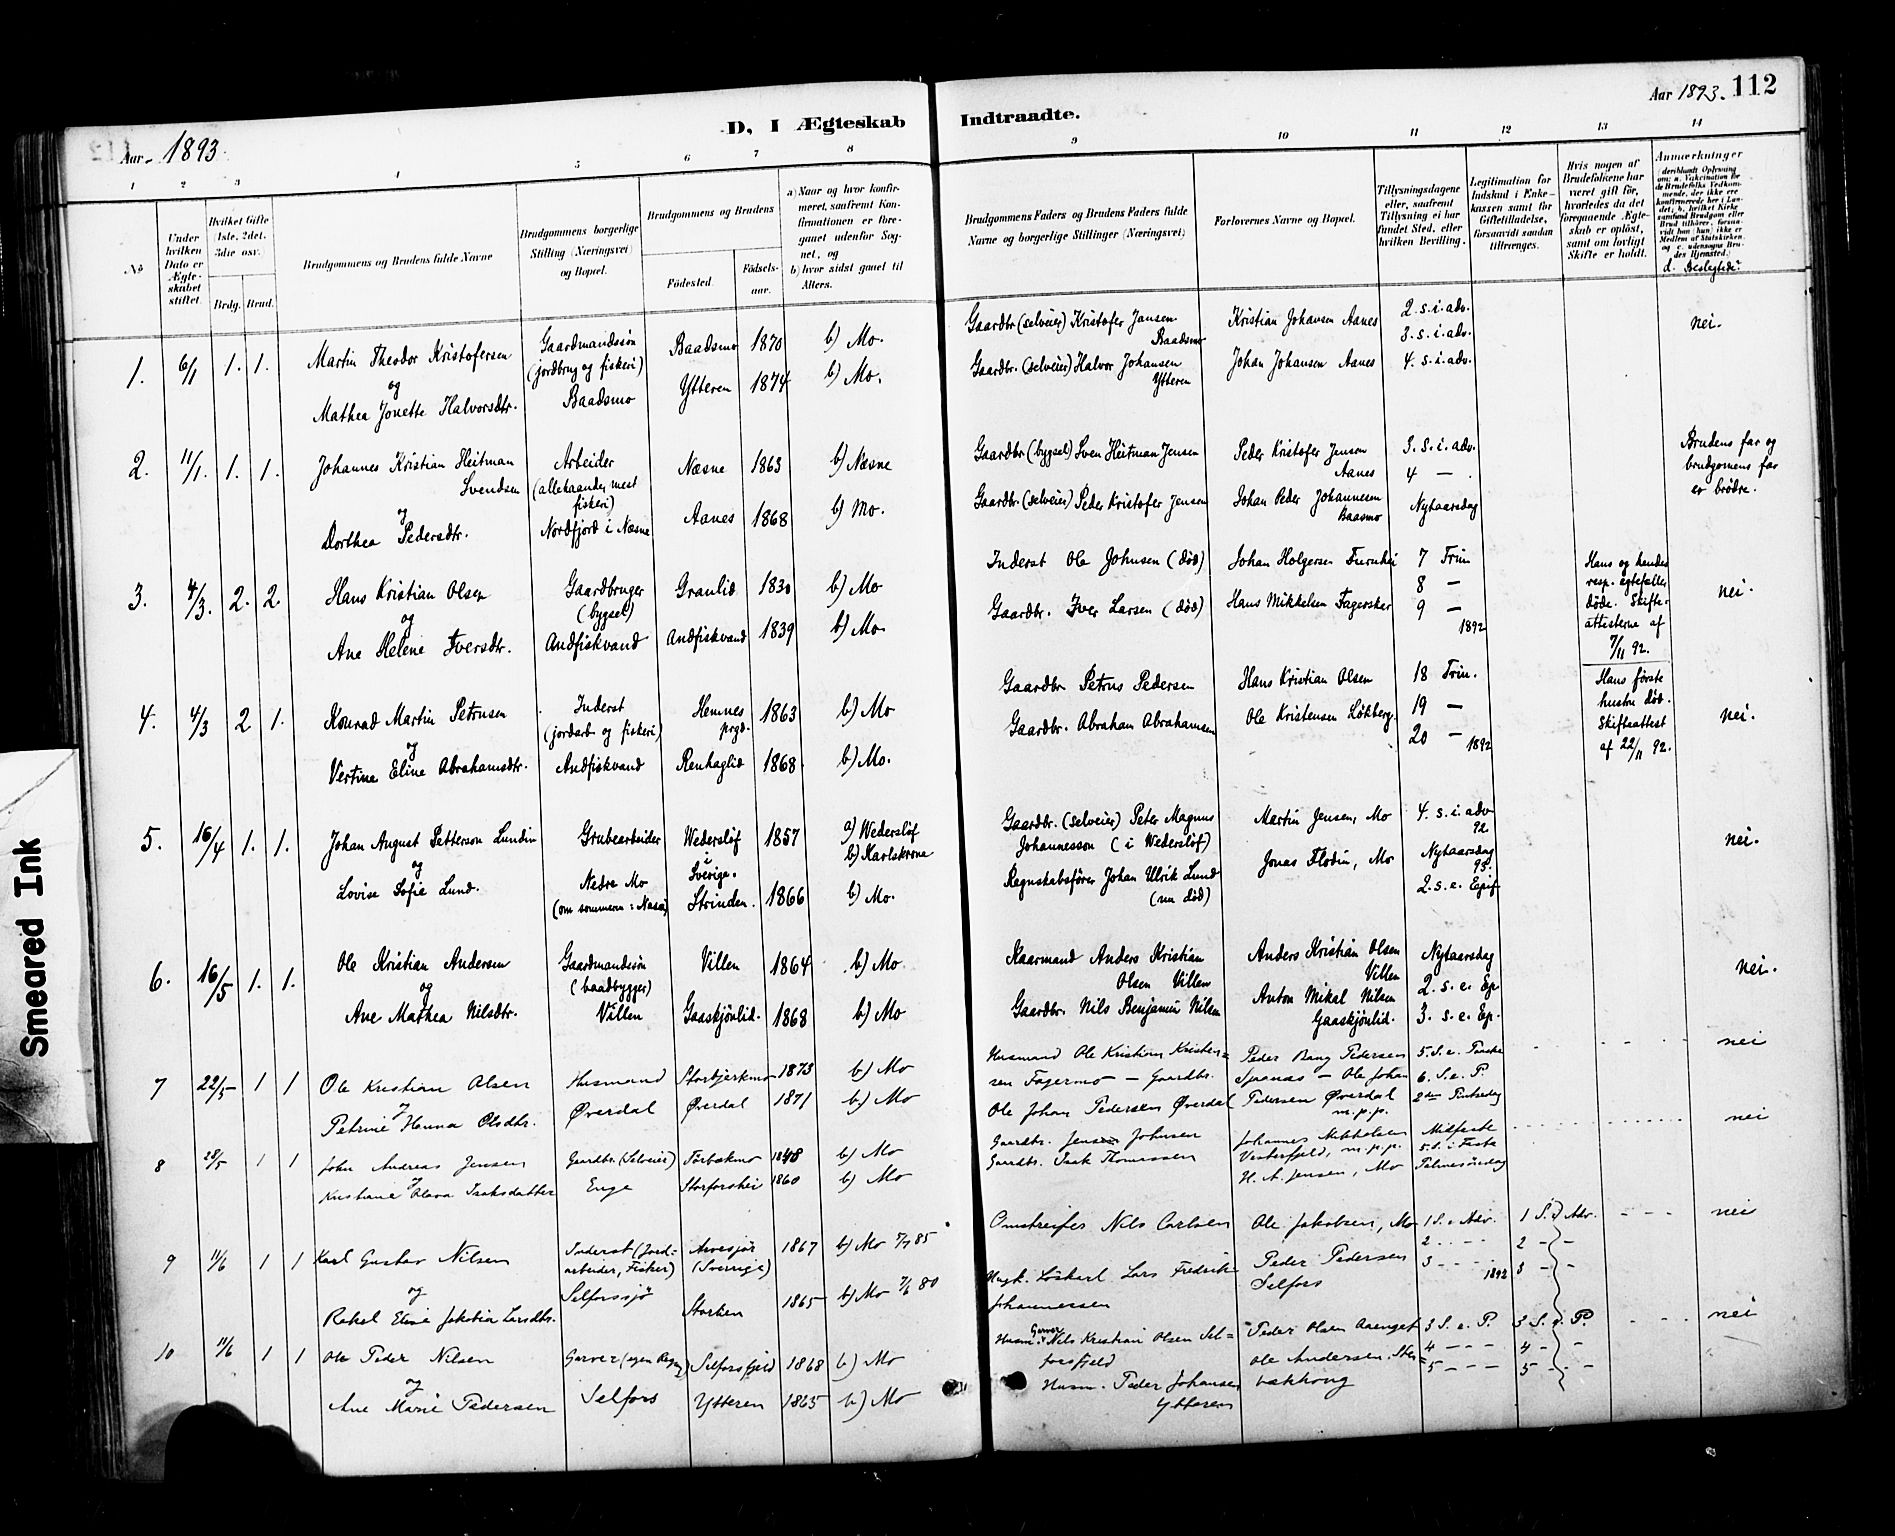 Aar 1893.
D, I Ægteskab
Indtraadte.
Aar 1893. 112
1 2 3 4 5 6 7 8
9 10 11 12 13 14
No
Under hvilken Dato er Ægteskabet stiftet.
Hvilket Gifte (1ste, 2det, 3die osv.
Brdg. Brud.
Brudgommens og Brudens fulde Navne
Brudgommens borgerlige Stilling (Næringsvei) og Bopæl.
Brudgommens og Brudens
Fødested.
Fødselsaar.
a) Naar og hvor konfirmeret, saafremt Konfirmationen er foregaaet udenfor Sognet, og
b) hvor sidst gaaet til Alters.
Brudgommens Faders og Brudens Faders fulde Navne og borgerlige Stillinger (Næringsvei)
Forlovernes Navne og Bopæl.
Tillysningsdagene eller, saafremt Tillysning ei har fundet Sted, efter hvilken Bevilling.
Legitimation for Indskud i Enkekassen samt for Giftetilladelse, forsaavidt saadan tiltrænges.
Hvis nogen af Brudefolkene har været gift før, hvorledes da det foregaaende Ægteskab er opløst, samt om lovligt Skifte er holdt.
Anmærkninger
d. Beslegtede?
1. 6/1 1. 1.
Martin Theodor Kristofersen
og
Mathea Jonette Halvorsdtr.
Gaardmandssön
(jordbrug og fiskeri)
Baadsmo
Baadsmo 1870 b) Mo.
Ytteren 1874 b) Mo.
Gaardbr. (selveier) Kristofer Jensen
Baadsmo
Gaardbr. (selveier) Halvor Johansen
Ytteren
Kristian Johansen Aanes
Johan Johansen Aanes
2. s. i. adv.
3. s. i. adv.
4. s. i. adv.
nei.
2. 11/1. 1. 1.
Johannes Kristian Heitman
Svendsen
og
Dorthea Pedersdtr.
Arbeider
(allehaande, mest
fiskeri)
Nordfjord i Næsne
Næsne 1863 b) Næsne
Aanes 1868 b) Mo.
Gaardbr. (bygsel) Sven Heitman Jensen
Gaardbr. (selveier) Peder Kristofer Jensen
Peder Kristofer Jensen
Aanes
Johan Peder Johannesen
Baasmo
3. s. i. adv.
4 — .
Nytaarsdag
Brudens far og
brudgomens far
er brödre.
3. 4/3. 2. 2.
Hans Kristian Olsen
og
Ane Helene Iversdtr.
Gaardbruger
(bygsel)
Andfiskvand
Granlid 1830 b) Mo
Andfiskvand 1839 b) Mo.
Inderst Ole Johnsen (död)
Gaardbr. Iver Larsen (död)
Johan Holgersen Furuhei
Hans Mikkelsen Fagerskar
7 Trin
8 —
9 —
1892
Hans og hendes
resp. egtefæller
döde. Skifte-
attesterne af
7/11 92.
nei.
4. 4/3 2 1.
Konrad Martin Petrusen
og
Vertine Eline Abrahamsdtr.
Inderst
(jordarb. og fiskeri)
Andfiskvand
Hemnes
prgd. 1863 b) Mo
Renhaglid 1868. b) Mo.
Gaardbr. Petrus Pedersen
Gaardbr. Abraham Abrahamsen
Hans Kristian Olsen
Ole Kristensen Lökberg.
18 Trin.
19 —
20 — 1892
Hans förste
hustru död.
Skifteattest
af 22/11 92.
nei.
5. 16/4 1. 1.
Johan August Petterson Lundin
og
Lovise Sofie Lund.
Grubearbeider
Nedre Mo
(om sommeren: Nasa)
Wederslöf
i
Sverige. 1857
Strinden. 1866
a) Wederslöf
b) Karlskrone
b) Mo.
Gaardbr. (selveier) Peter Magnus
Johannesson (i Wederslöf)
Regnskabsförer Johan Ulrik Lund
(nu död)
Martin Jensen, Mo
Jonas Flodin, Mo
4. s. i. adv
92
Nytaarsdag
93.
2. s. e. Epif
nei.
6. 16/5 1. 1.
Ole Kristian Andersen
og
Ane Mathea Nilsdtr.
Gaardmandssön
(baadbygger)
Villen
Villen 1864 b) Mo.
Gaaskjönlid. 1868 b) Mo
Kaarmand Anders Kristian
Olsen Villen
Gaardbr. Nils Benjamin Nilsen
Anders Kristian Olsen
Villen
Anton Mikal Nilsen
Gaaskjönlid.
Nytaarsdag
2. s. e. Ep
3. s. e. Ep.
nei.
7 22/5 1 1
Ole Kristian Olsen
og
Petrine Hanna Olsdtr.
Husmand
Øverdal
Storbjerkmo 1873 b) Mo
Øverdal 1871 b) Mo
Husmand Ole Kristian Kristen=
sen Fagermo — Gaardbr.
Ole Johan Pedersen Øverdal
Peder Bang Pedersen
— Ole Johan
Pedersen Øverdal
m.p.p.
5. S. e. Paaske
6. S. e. P.
2den Pintsedag
nei
8 28/5 1 1
John Andreas Jensen
og
Kristiane Olava Isaksdatter
Gaardbr. (Selveier)
Enge
Forbækmo 1848 b) Mo
Storforshei 1860 b) Mo
Gaardbr. Jens Johnsen
Gaardbr. Isak Thomassen
Johannes Mikkelsen
Vesterfjeld, m.p.p.
H. A. Jensen, Mo
Midfaste
5. S. i Faste
Palmesöndag
nei
9 11/6 1 1
Karl Gustav Nilsen
og
Rakel Eline Jakobia Larsdtr.
Inderst (Jord=
arbeider, Fisker)
Selforssjö
Arvesjör
(Sverrige) 1867 b) Mo 7/7 85
Storlien 1865 b) Mo 7/6 80
Omstreifer Nils Carlsen
Lars Fredrik
Johannessen
Ole Jakobsen, Mo
Peder Pedersen
Selfors
1 S. i Adv.
2 - - -
3 - - - 1892
1 S. i Adv.
2 - -
3 - -
nei
10 11/6 1 1
Ole Peder Nilsen
og
Ane Marie Pedersen
Garver (egen Regng)
Selfors
Selforsfjeld 1868 b) Mo
Ytteren 1865 b) Mo
Garver
Husm. Nils Kristian Olsen Sel=
forsfjeld
Husm. Peder Johansen
Ytteren
Peder Olsen
Ole Andersen
3 S. e. P.
4 - - -
5 - - -
3 S. e. P.
4 - -
5 - -
nei
Smeared Ink